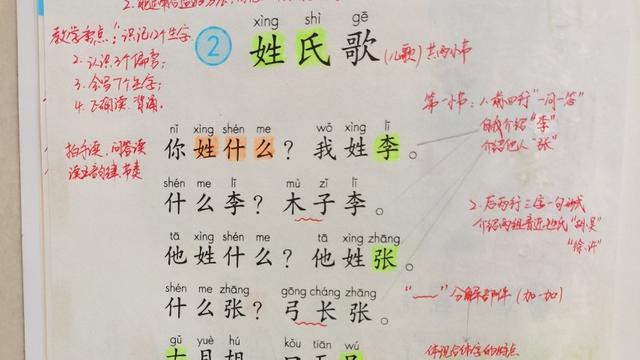 教学重点：识记12个生字
2. 认识3个偏旁；
3. 会写7个生字；
4. 正确读、背诵。
xìng shì gē
② 姓氏歌 (儿歌) 共两小节
拍手读、问答读
第一小节：1. 前四行"一问一答"
自我介绍"李"
介绍他人"张"
nǐ xìng shén me wǒ xìng lǐ
你姓什么？我姓李。
shén me lǐ mù zǐ lǐ
什么李？木子李。
2. 后两行三字一句形式
"胡、吴"
"徐、许"
tā xìng shén me tā xìng zhāng
他姓什么？他姓张。
shén me zhāng gōng cháng zhāng
什么张？弓长张。
"﹏" 分解部件 (加一加)
gǔ yuè hú kǒu tiān wú